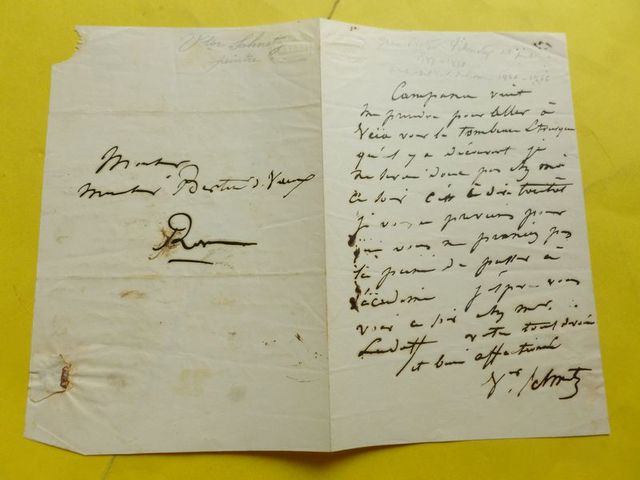 Victor Schnetz
peintre
Monsieur
Monsieur Bertin de Vaux
Rome
Campana vient
me prendre pour aller à
Veio voir le tombeau Etrusque
qu'il y a découvert je
ne serai donc pas chez moi
ce soir c'est à dire tantôt
je vous en préviens pour
que vous ne preniez pas
la peine de passer à
l'académie j'espère vous
voir ce soir chez mr.
Ludolff votre tout dévoué
et bien affectionné
Vor Schnetz